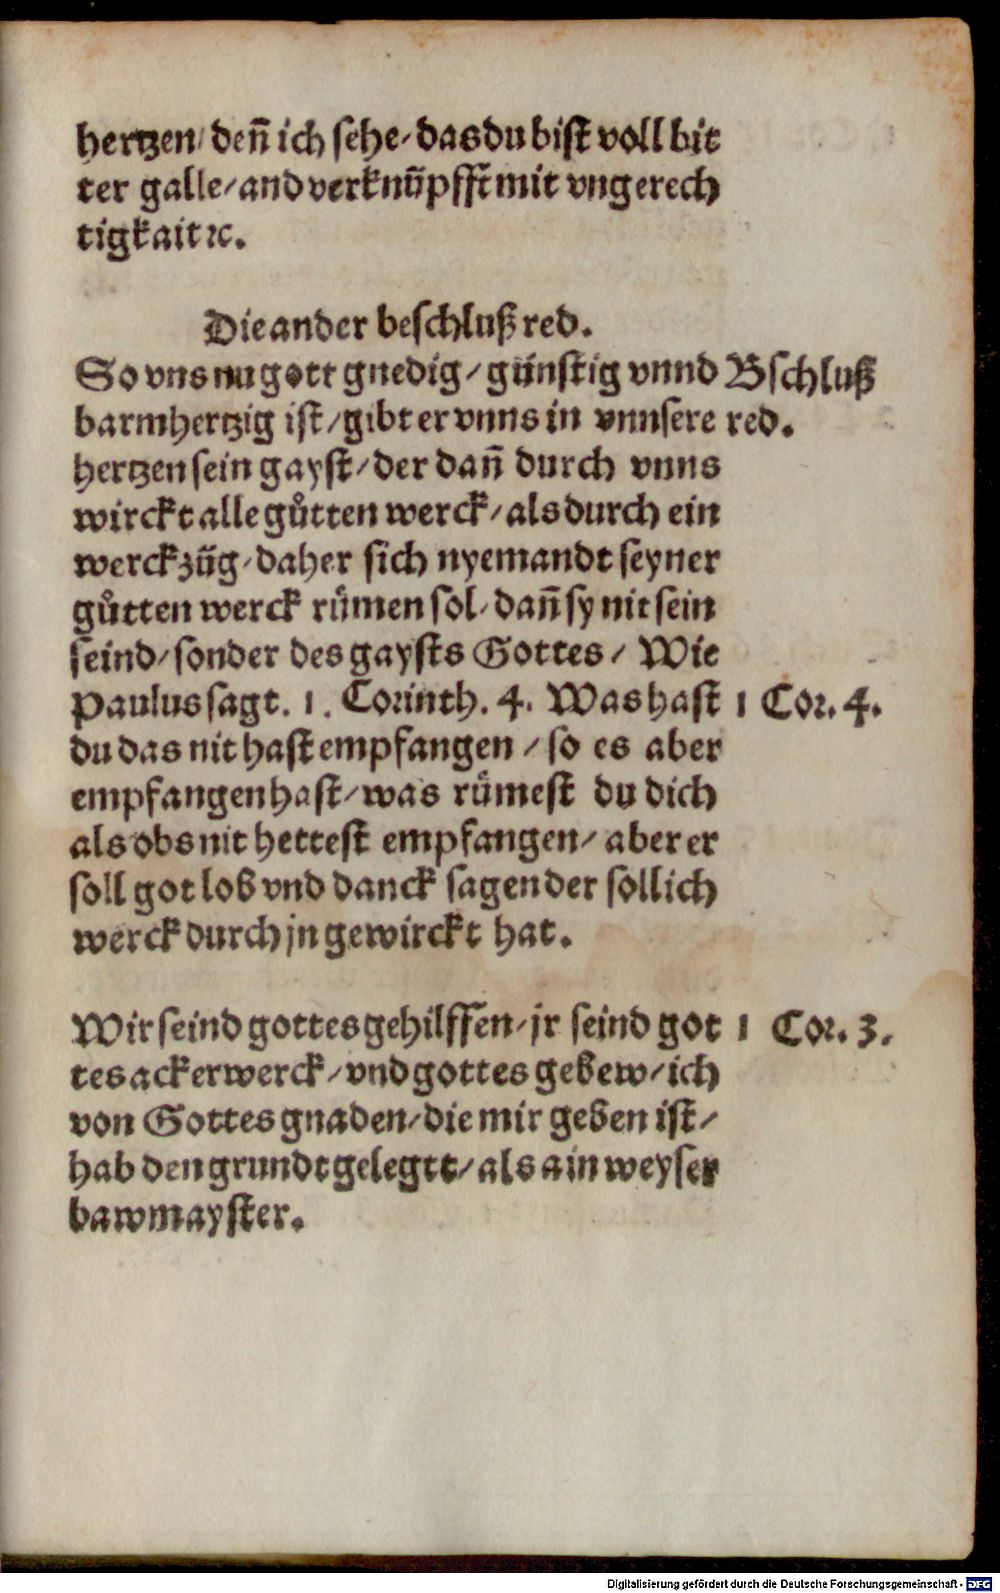 hertzen/ deñ ich sehe/ das du bist voll bit
ter galle/ and verknüpfft mit vngerech
tigkait ꝛc.
Die ander beschluß red.
So vns nu gott gnedig/ günstig vnnd
Bschluß
barmhertzig ist/ gibt er vnns in vnnsere
red.
hertzen sein gayst/ der dañ durch vnns
wirckt alle gůtten werck/ als durch ein
werckzüg/ daher sich nyemandt seyner
gůtten werck rümen sol/ dañ sy nit sein
seind/ sonder des gaysts Gottes/ Wie
Paulus sagt. 1. Corinth. 4. Was hast
1 Cor. 4.
du das nit hast empfangen/ so es aber
empfangen hast/ was rümest du dich
als obs nit hettest empfangen/ aber er
soll got lob vnd danck sagen der sollich
werck durch jn gewirckt hat.
Wir seind gottes gehilffen/ jr seind got
1 Cor. 3.
tes ackerwerck/ vnd gottes gebew/ ich
von Gottes gnaden/ die mir geben ist/
hab den grundt gelegtt/ als ain weyser
bawmayster.
Digitalisierung gefördert durch die Deutsche Forschungsgemeinschaft - DFG